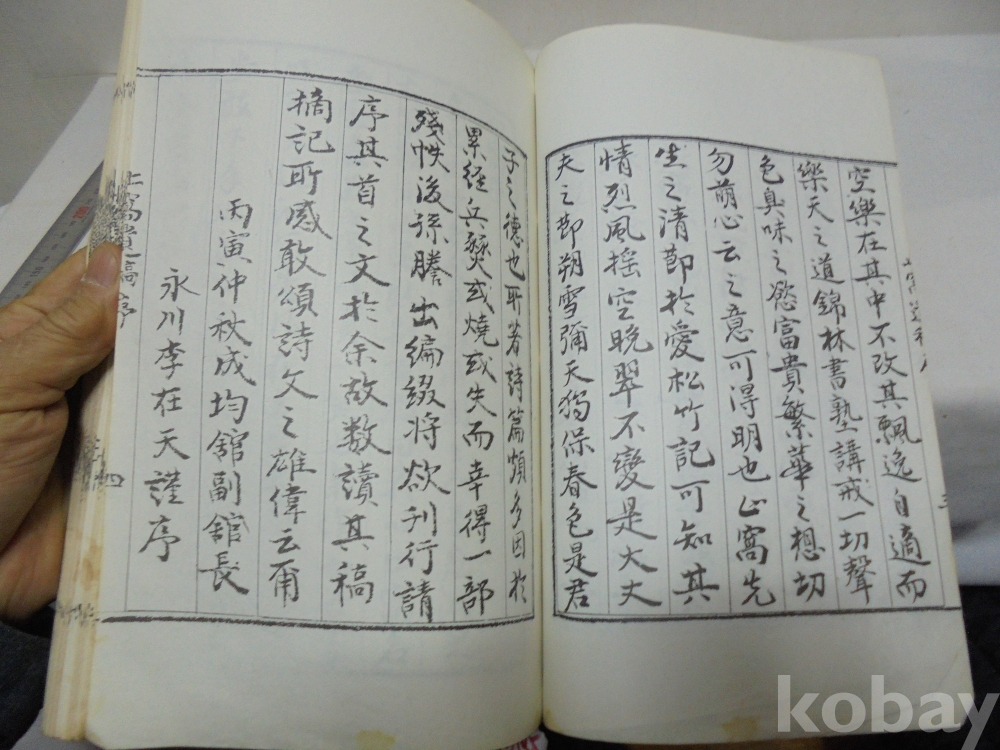 空樂在其中不改其飄逸自適而
樂天之道錦林書塾講戒一切聲
色臭味之慾富貴繁華之想切
勿萌心云之意可得明也止窩先
生之清節於愛松竹記可知其
情烈風搖空晩翠不變是大丈
夫之節朔雪彌天獨保春色是君
子之德也所著詩篇頗多因於
累經兵燹或燒或失而幸得一部
殘帙後孫謄出編綴將欲刊行請
序其首之文於余故数讀其稿
摘記所感敢頌詩文之雄偉云甫
丙寅仲秋成均舘副舘長
永川李在天謹序
止窩遺稿序
四
kobay